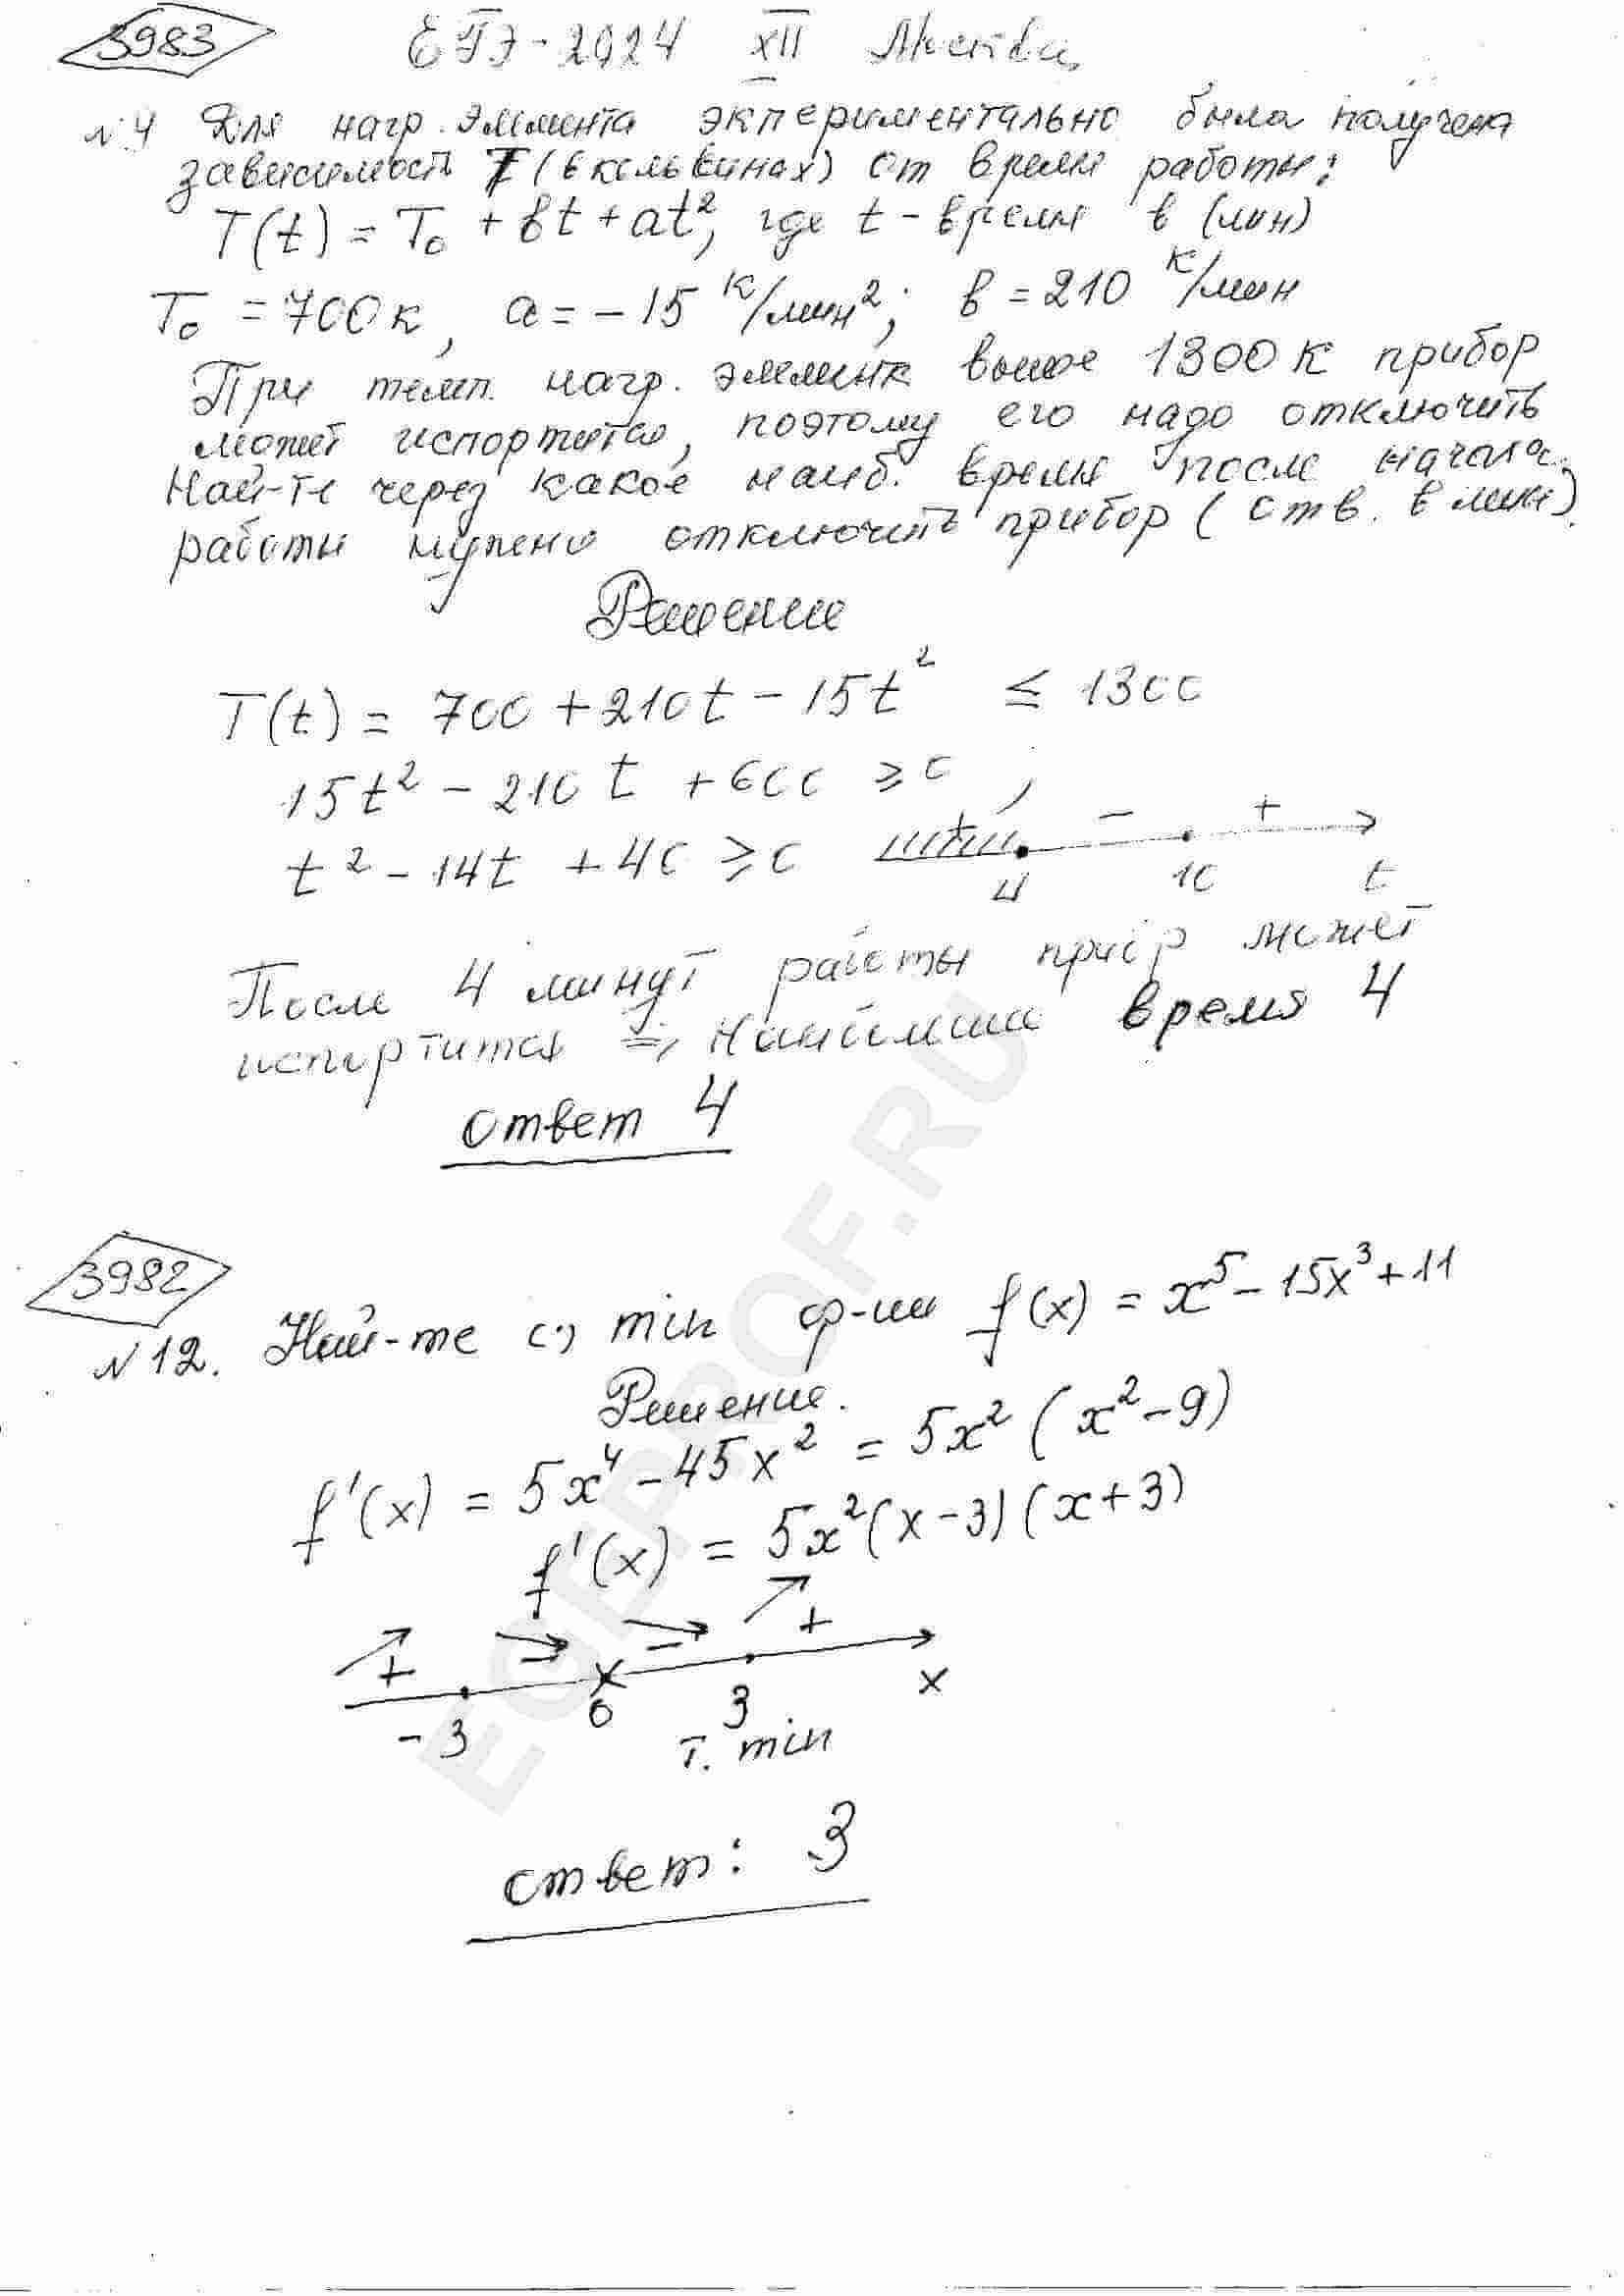 3983 ЕГЭ-2024 XII Москва
№4 Для нагр. элемента экпериментально была получена
зависимость T (в кельвинах) от время работы:
T(t) = T₀ + bt + at², где t - время в (мин)
T₀ = 700к, a = -15 К/мин²; b = 210 К/мин
При темп. нагр. элемента выше 1300К прибор
может испортится, поэтому его надо отключить
Най-те через какое наиб. время после начала
работы нужно отключить прибор (отв. в мин).
Решение
T(t) = 700 + 210t - 15t² ≤ 1300
15t² - 210t + 600 ≥ 0;
t² - 14t + 40 ≥ 0 + - +
4 10 t
После 4 минут работы прибор может
испортится ⇒ Наибольшее время 4
ответ 4
EGEPROF.RU
3982
№12. Най-те (·) min ф-ии f(x) = x⁵ - 15x³ + 11
Решение.
f'(x) = 5x⁴ - 45x² = 5x² (x² - 9)
f'(x) = 5x²(x-3)(x+3)
+ - - +
-3 0 3 x
т. min
ответ: 3